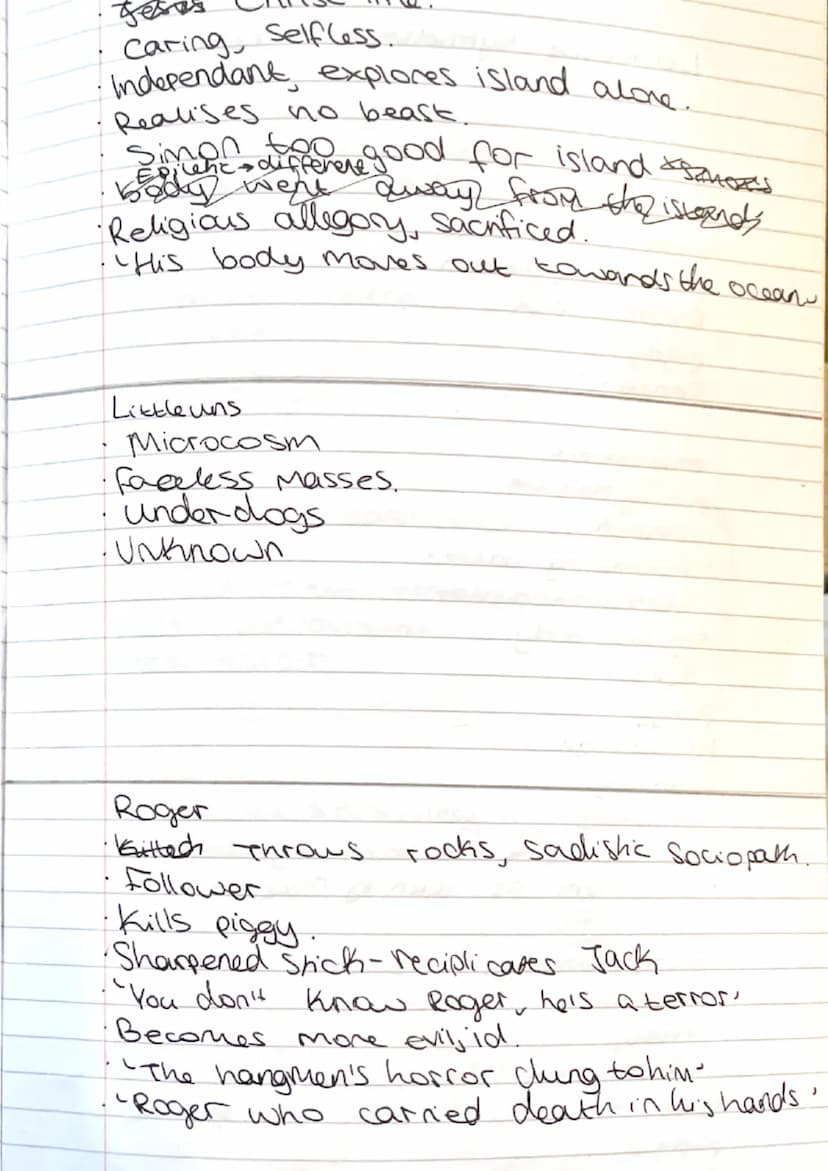 · Jesus Christ like.
· Caring, selfless.
· Independant, explores island alone.
· Realises no beast.
· Simon too good for island
Epileptic → different
body went away from the islands
· Religious allegory, sacrificed.
· 'His body moves out towards the ocean
Littleuns
· Microcosm
· Faceless masses.
· Underdogs
· Unknown
Roger
· Killed Throws rocks, sadistic sociopath.
· Follower
· Kills piggy.
· Sharpened stick - reciplicates Jack
· 'You don't know Roger, he's a terror'
· Becomes more evil, id.
· 'The hangmen's horror clung to him'
· 'Roger who carried death in his hands'